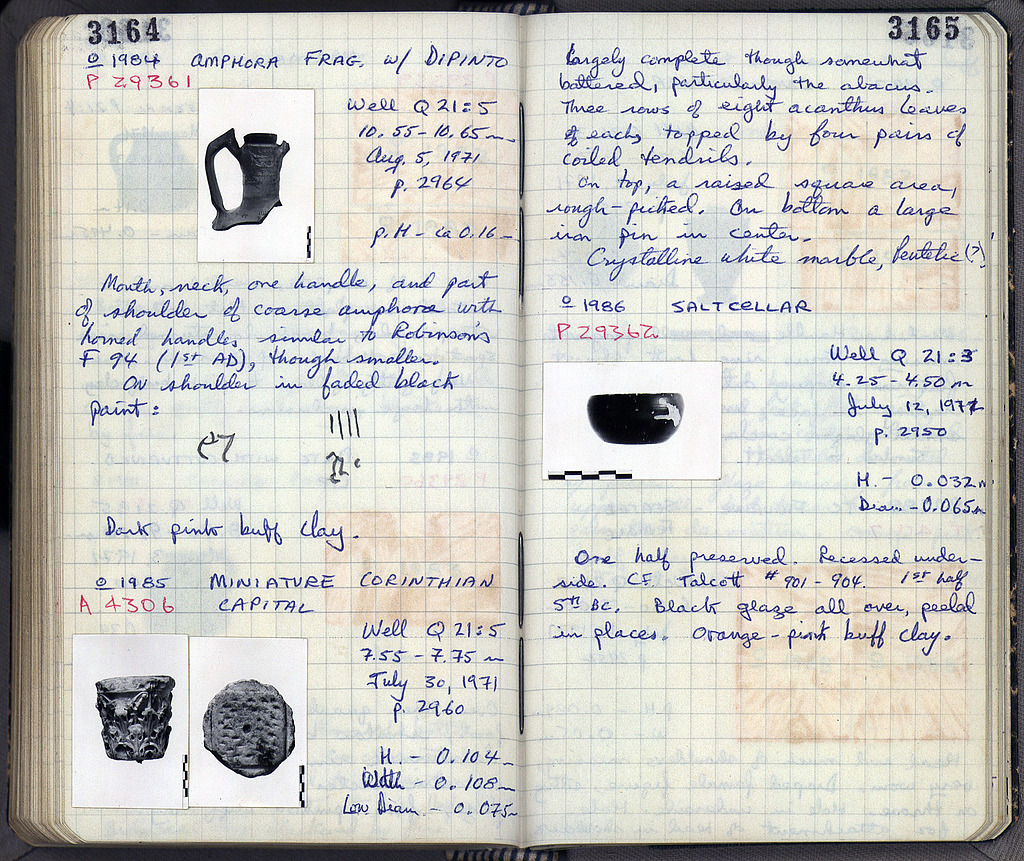 3164
o 1984 AMPHORA FRAG. w/ DIPINTO
P 29361
Well Q 21:5
10.55-10.65 m
Aug. 5, 1971
p. 2964
p.H - ca 0.16 -
Mouth, neck, one handle, and part
of shoulder of coarse amphora with
horned handles similar to Robinson's
F 94 (1st AD), though smaller.
On shoulder in faded black
paint:
Dark pink buff clay.
o 1985 MINIATURE CORINTHIAN
A 4306 CAPITAL
Well Q 21:5
7.55-7.75 m
July 30, 1971
p. 2960
H. - 0.104
Width - 0.108 m
Low. Diam. - 0.075 m
3165
Largely complete though somewhat
battered, particularly the abacus.
Three rows of eight acanthus leaves
each, topped by four pairs of
coiled tendrils.
On top, a raised square area,
rough-picked. On bottom a large
iron pin in center.
Crystalline white marble, Pentelic (?).
o 1986 SALTCELLAR
P 29362
Well Q 21:3
4.25-4.50 m
July 12, 1971
p. 2950
H. - 0.032 m
Diam. - 0.065 m
One half preserved. Recessed under-
side. Cf. Talcott # 901-904. 1st half
5th BC. Black glaze all over, peeled
in places. Orange-pink buff clay.